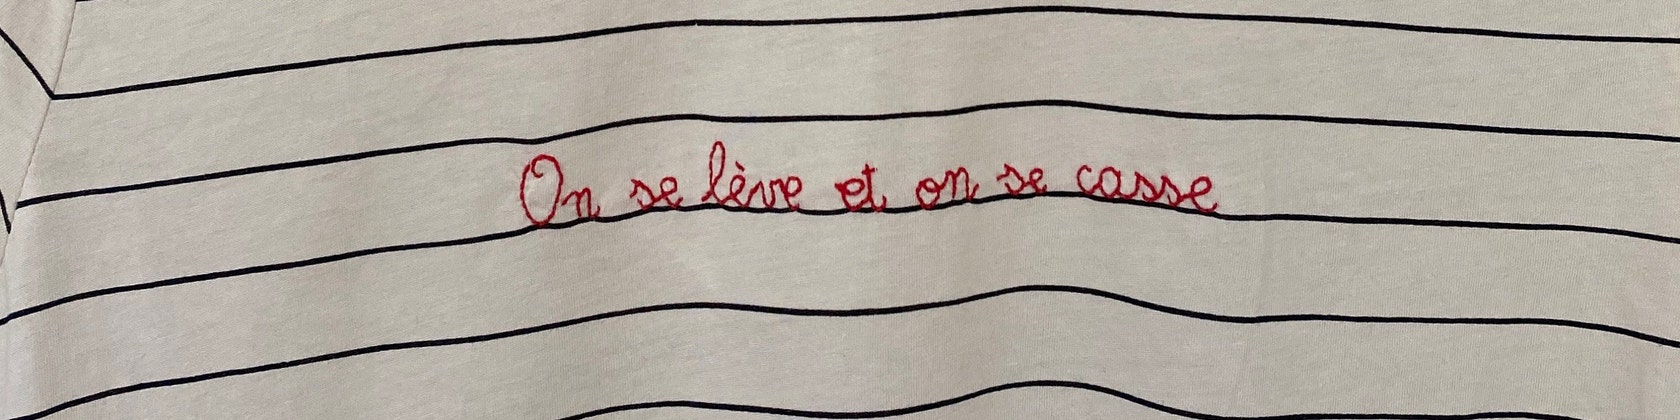 On se lève et on se casse